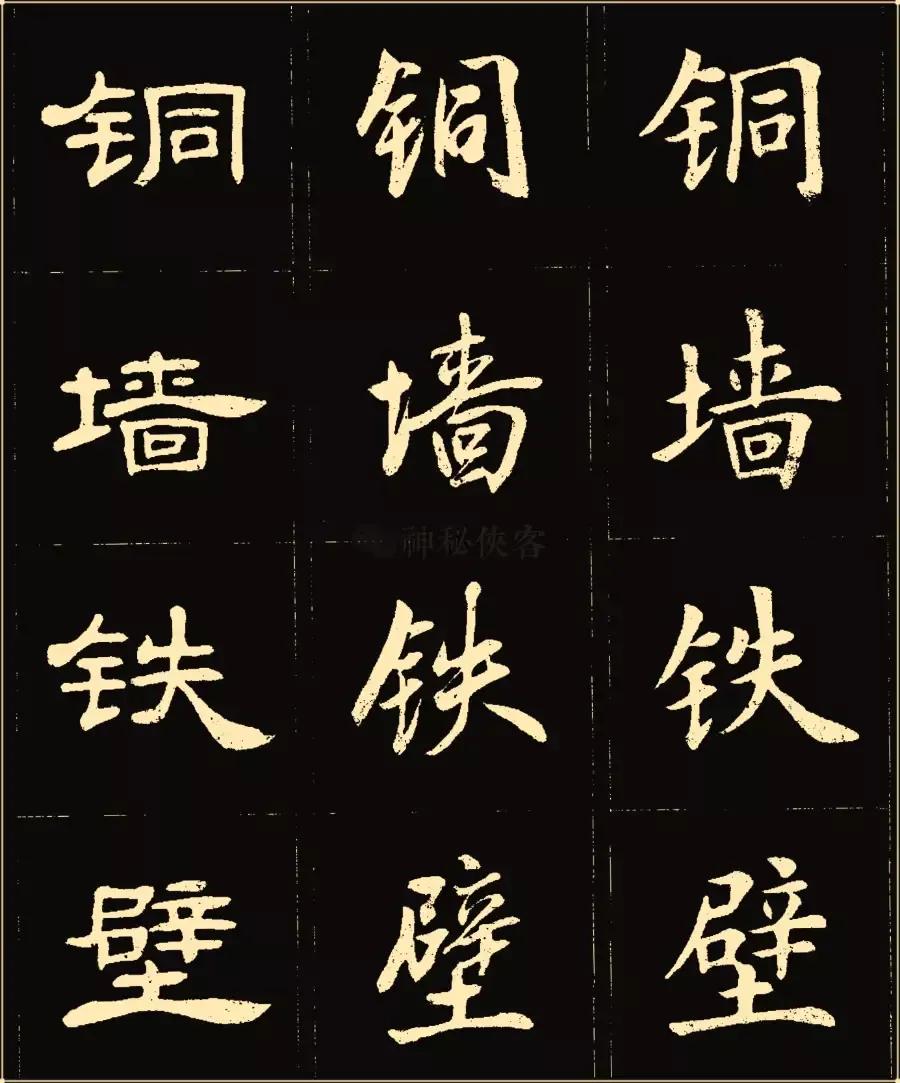 铜 铜 铜
墙 墙 墙
铁 铁 铁
壁 壁 壁
神秘侠客